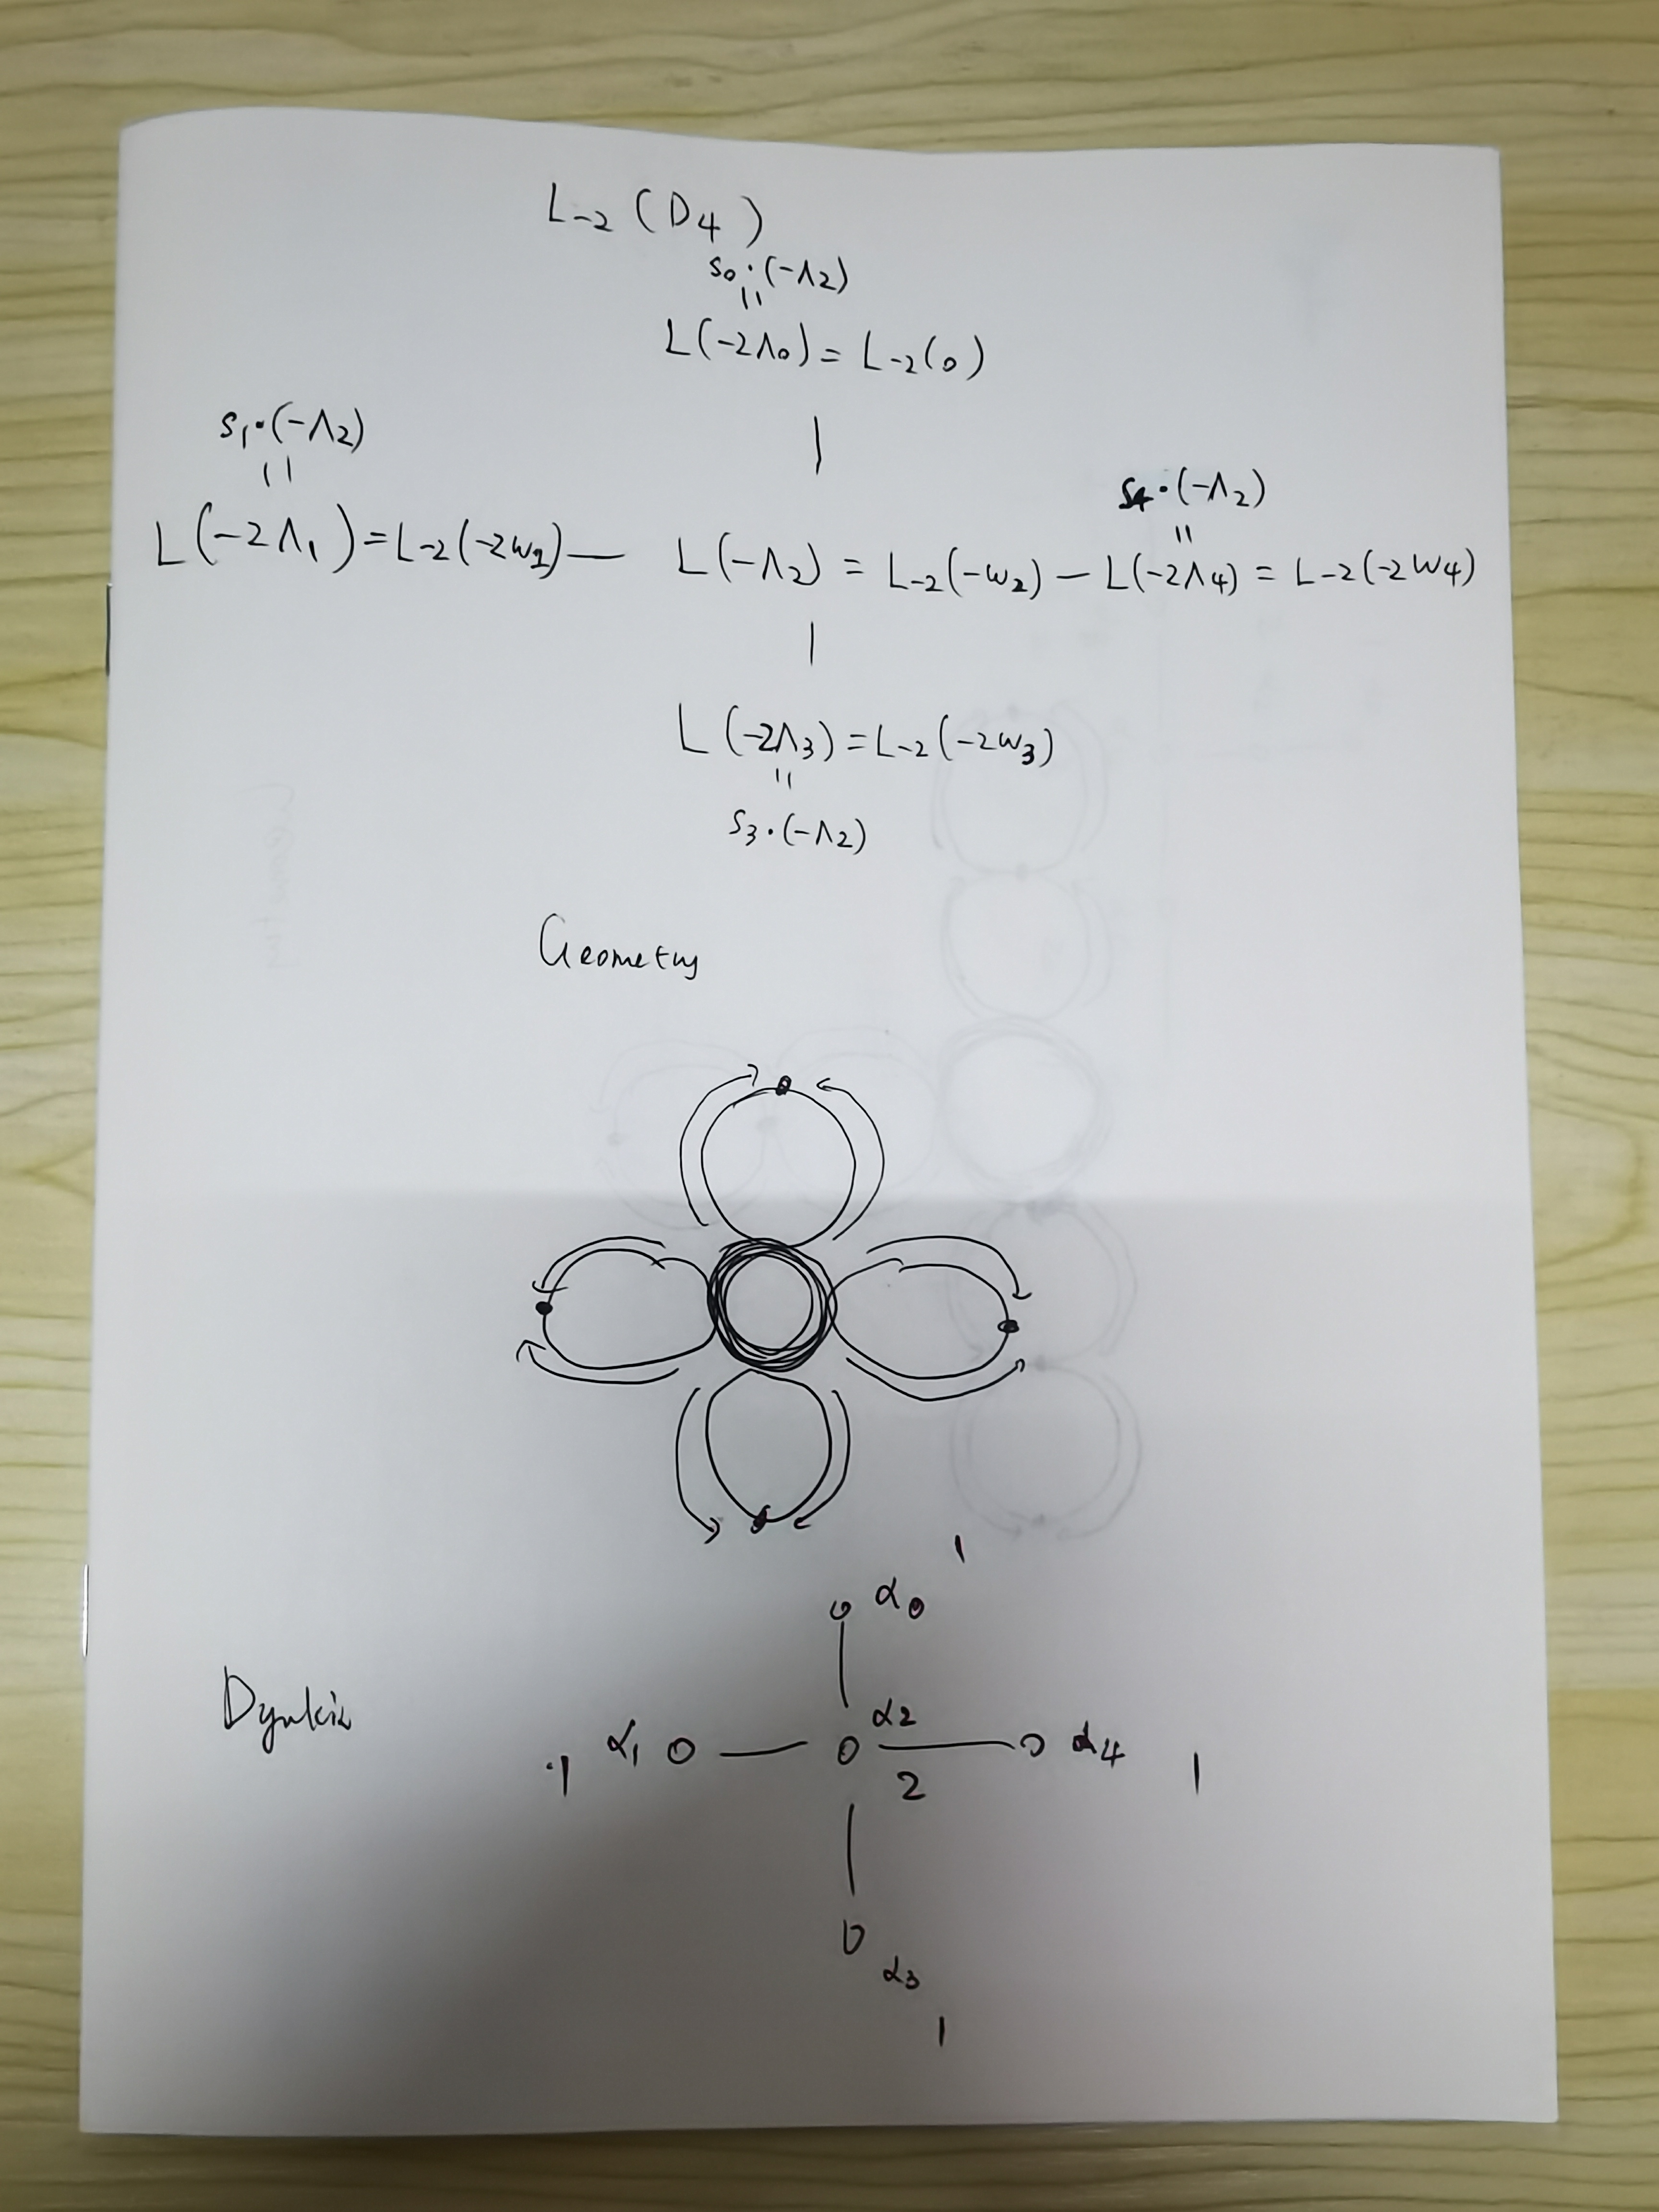 L-2 (D4)
s0·(-Λ2)
=
L(-2Λ0) = L-2(0)
s1·(-Λ2)
=
s4·(-Λ2)
=
L(-2Λ1) = L-2(-2w1) — L(-Λ2) = L-2(-w2) — L(-2Λ4) = L-2(-2w4)
L(-2Λ3) = L-2(-2w3)
=
s3·(-Λ2)
Geometry
1
α0
Dynkin
α2
1 α1 α4 1
2
α3
1